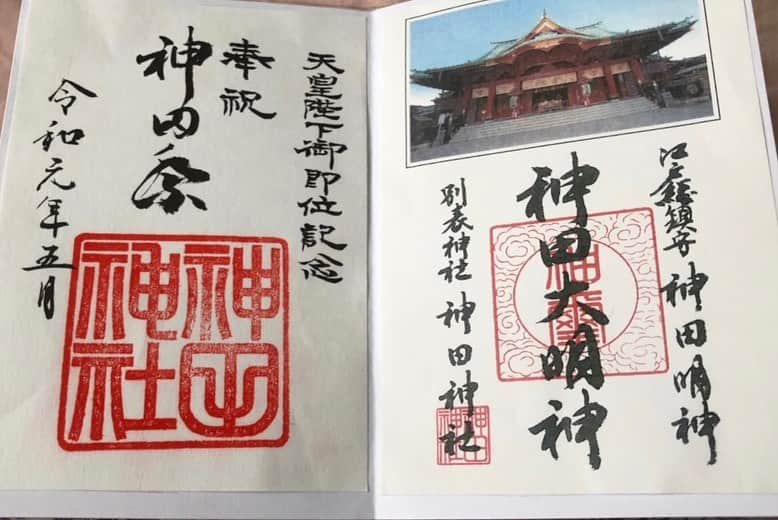 天皇陛下御即位記念
奉祝
神田祭
令和元年五月
神田
神社
江戸総鎮守
神田明神
神田大明神
別表神社
神田神社
神田
神社